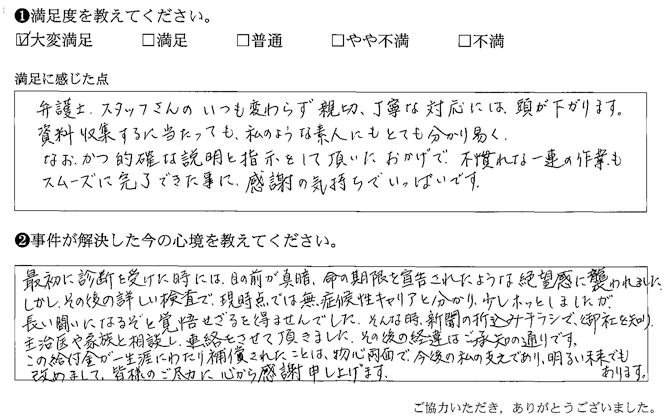 ❶満足度を教えてください。
☑大変満足 □満足 □普通 □やや不満 □不満
満足に感じた点
弁護士、スタッフさんの いつも変わらず 親切、丁寧な 対応には、頭が下がります。
資料 収集するに当たっても、私のような素人にもとても分かり易く、
なお、かつ的確な説明と指示をして頂いた おかげで、不慣れな一連の作業も
スムーズに完了できた事に、感謝の気持ちでいっぱいです。
❷事件が解決した今の心境を教えてください。
最初に診断を受けた時には、目の前が真暗、命の期限を宣告されたような絶望感に襲われました。
しかし、その後の詳しい検査で、現時点では無症候性キャリアと分かり、少しホッとしましたが、
長い闘いになるぞと覚悟せざるを得ませんでした。そんな時、新聞の折込みチラシで、御社を知り、
主治医や家族と相談し、連絡をさせて頂きました。その後の経過はご承知の通りです。
この給付金が一生涯にわたり補償されたことは、物心両面で、今後の私の支えであり、明るい未来でも
あります。
改めまして、皆様のご尽力に心から感謝申し上げます。
ご協力いただき，ありがとうございました。